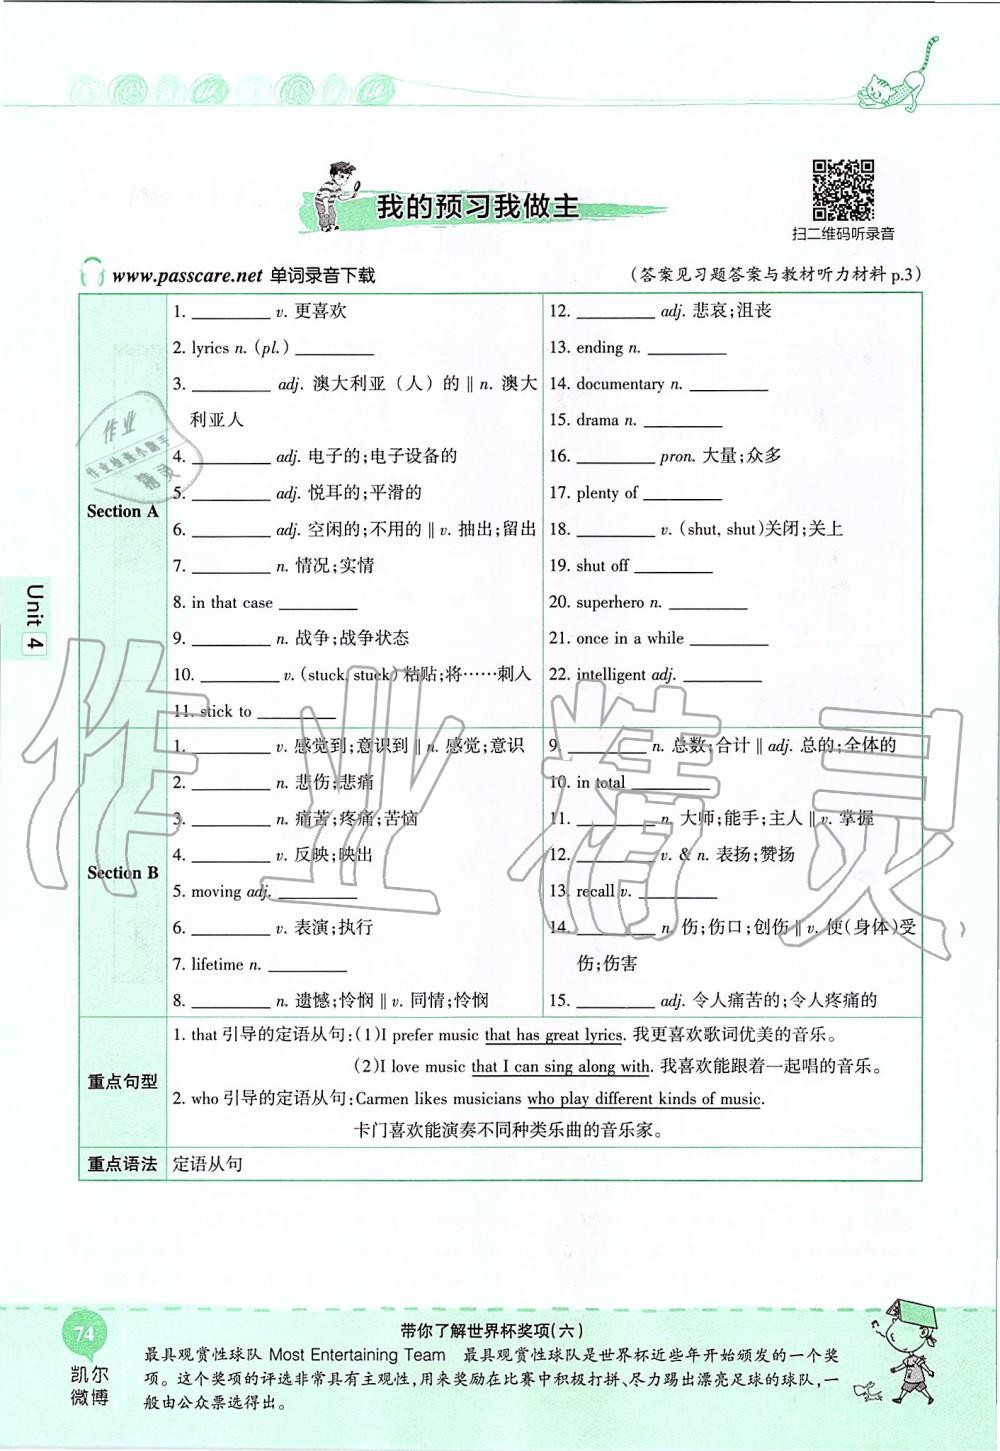 我的预习我做主
扫二维码听录音
www.passcare.net 单词录音下载
(答案见习题答案与教材听力材料 p.3)
Unit 4
Section A
1. ________ v. 更喜欢
2. lyrics n. (pl.) ________
3. ________ adj. 澳大利亚（人）的 ‖ n. 澳大
利亚人
4. ________ adj. 电子的;电子设备的
5. ________ adj. 悦耳的;平滑的
6. ________ adj. 空闲的;不用的 ‖ v. 抽出;留出
7. ________ n. 情况;实情
8. in that case ________
9. ________ n. 战争;战争状态
10. ________ v. (stuck, stuck) 粘贴;将……刺入
11. stick to ________
12. ________ adj. 悲哀;沮丧
13. ending n. ________
14. documentary n. ________
15. drama n. ________
16. ________ pron. 大量;众多
17. plenty of ________
18. ________ v. (shut, shut)关闭;关上
19. shut off ________
20. superhero n. ________
21. once in a while ________
22. intelligent adj. ________
Section B
1. ________ v. 感觉到;意识到 ‖ n. 感觉;意识
2. ________ n. 悲伤;悲痛
3. ________ n. 痛苦;疼痛;苦恼
4. ________ v. 反映;映出
5. moving adj. ________
6. ________ v. 表演;执行
7. lifetime n. ________
8. ________ n. 遗憾;怜悯 ‖ v. 同情;怜悯
9. ________ n. 总数;合计 ‖ adj. 总的;全体的
10. in total ________
11. ________ n. 大师;能手;主人 ‖ v. 掌握
12. ________ v. & n. 表扬;赞扬
13. recall v. ________
14. ________ n. 伤;伤口;创伤 ‖ v. 使(身体)受
伤;伤害
15. ________ adj. 令人痛苦的;令人疼痛的
重点句型
1. that 引导的定语从句:(1)I prefer music that has great lyrics. 我更喜欢歌词优美的音乐。
(2)I love music that I can sing along with. 我喜欢能跟着一起唱的音乐。
2. who 引导的定语从句:Carmen likes musicians who play different kinds of music.
卡门喜欢能演奏不同种类乐曲的音乐家。
重点语法
定语从句
作业精灵
作业
作业检查小助手
精灵
74
凯尔
微博
带你了解世界杯奖项(六)
最具观赏性球队 Most Entertaining Team 最具观赏性球队是世界杯近些年开始颁发的一个奖
项。这个奖项的评选非常具有主观性,用来奖励在比赛中积极打拼、尽力踢出漂亮足球的球队,一
般由公众票选得出。